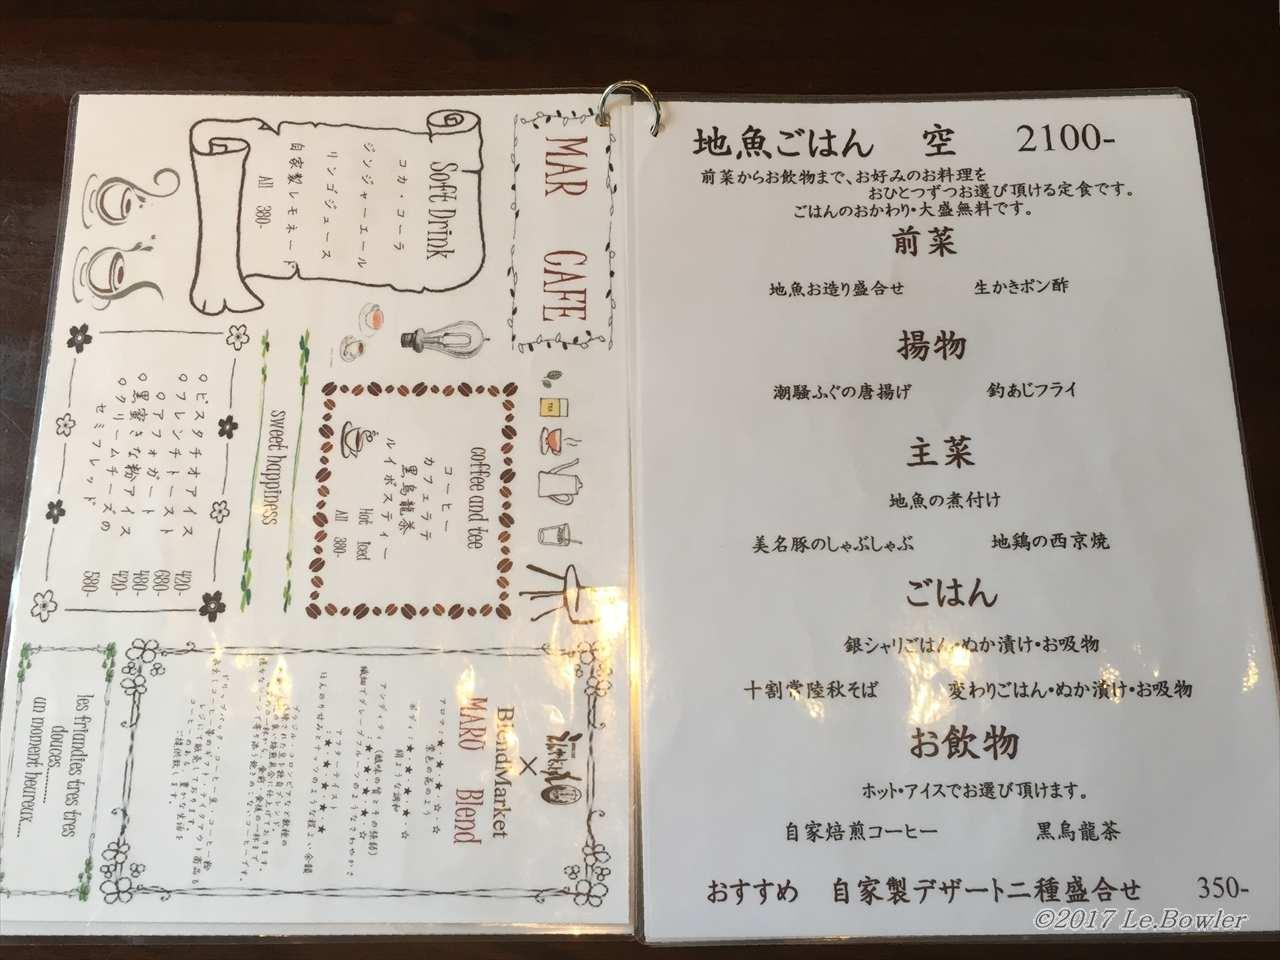 MAR CAFE
Soft Drink
コカ・コーラ
ジンジャーエール
リンゴジュース
自家製レモネード
All 380-
TEA
coffee and tee
コーヒー
カフェラテ
黒烏龍茶
ルイボスティー
Hot Iced
All 380-
sweet happiness
○ピスタチオアイス 420-
○フレンチトースト 680-
○アフォガート 480-
○黒蜜きな粉アイス 420-
○クリームチーズの
セミフレッド 580-
×
BlendMarket
MARO Blend
アロマ:★・★・★・☆・☆
茶色の花のよう
ボディ:★・★・★・☆・☆
絹ような調和
繊細でグレープフルーツのようなさわやかさ
アフターテイスト
ほんのり甘みとナッツのような程よい余韻
les friandies tres tres
douces..........
an moment heureux....
地魚ごはん 空 2100-
前菜からお飲物まで、お好みのお料理を
おひとつずつお選び頂ける定食です。
ごはんのおかわり・大盛無料です。
前菜
地魚お造り盛合せ 生かきポン酢
揚物
潮騒ふぐの唐揚げ 釣あじフライ
主菜
地魚の煮付け
美名豚のしゃぶしゃぶ 地鶏の西京焼
ごはん
銀シャリごはん・ぬか漬け・お吸物
十割常陸秋そば 変わりごはん・ぬか漬け・お吸物
お飲物
ホット・アイスでお選び頂けます。
自家焙煎コーヒー 黒烏龍茶
おすすめ 自家製デザート二種盛合せ 350-
©2017 Le.Bowler